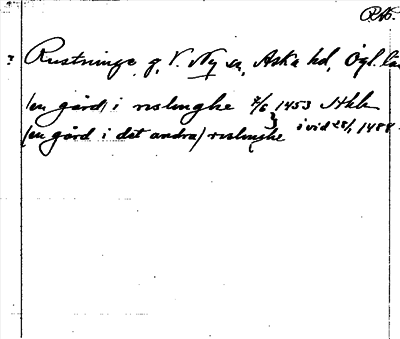 RAp.
? Rustninge g, V. Ny sn, Aska hd, Ögl. lä
(en gård) i rislinghe 7/6 1453
(en gård i det andra) rislinghe i vid 28/1 1488